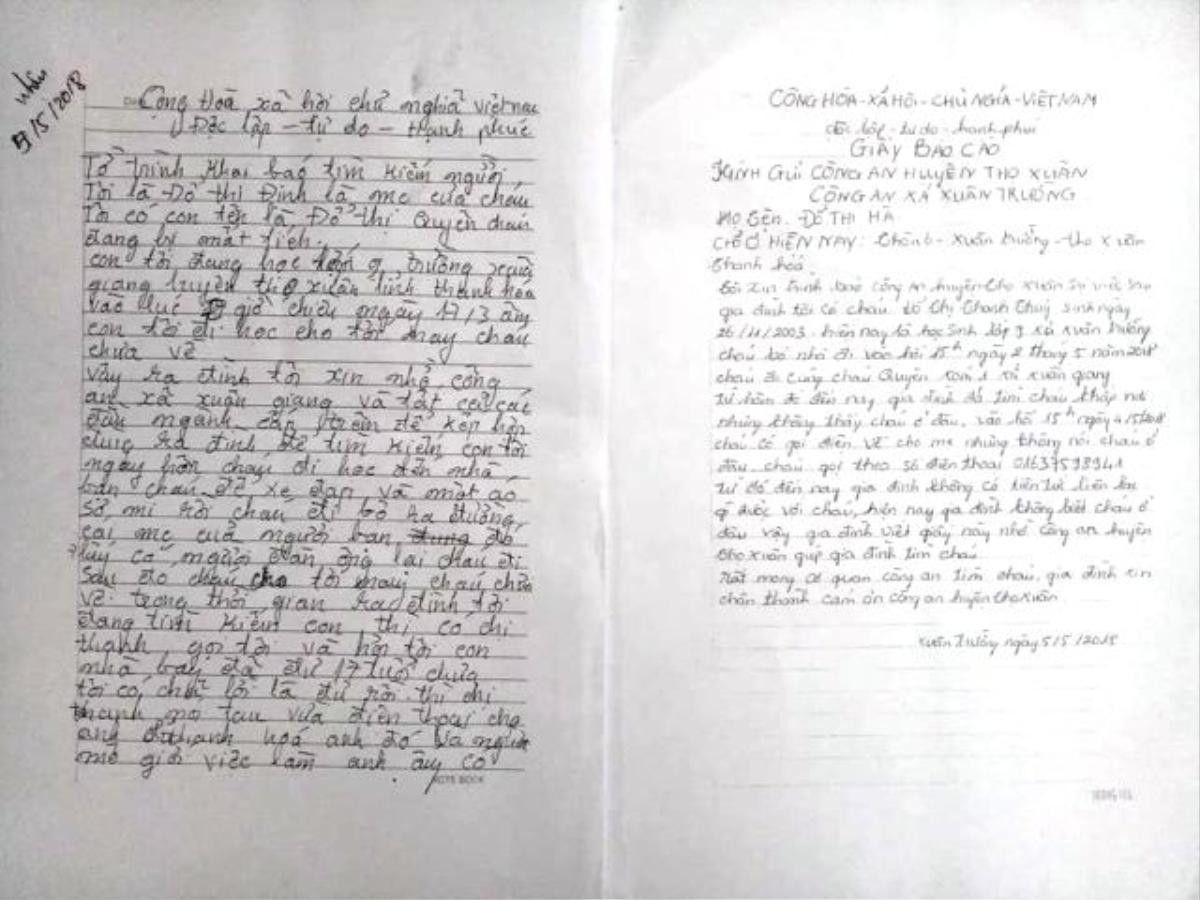 nhận
5/5/2018
Cộng Hoà xã hội chủ nghĩa việt nam
Độc lập - tự do - Hạnh phúc
Tờ trình khai báo tìm kiếm người
Tôi là Đỗ thị Định là mẹ của cháu
Tôi có con tên là Đỗ thị Quyên cháu
đang bị mất tích.
con tôi đang học lớp 9, trường xuân
giang huyện thọ xuân tỉnh thanh hóa
vào lúc giờ chiều ngày 17/3 âm
con tôi đi học cho tới nay cháu
chưa về
vậy ra đình tôi xin nhờ công
an xã xuân giang và tất cả các
ban ngành cấp trên để kếp hợp
cùng ra đình để tìm kiếm con tôi
ngày hôm cháu đi học đến nhà
bạn cháu để xe đạp và một áo
sơ mi rồi cháu đi bộ ra đường,
cái mẹ của người bạn đó
thấy có người đàn ông lai cháu đi
sau đó cháu cho tới nay cháu chưa
về trong thời gian ra đình tôi
đang tìm kiếm con thì có chị
thanh gọi tôi và hỏi tôi con
nhà bay đã đủ 17 tuổi chưa
tôi có chả lời là đủ rồi thì chị
thanh nó tau vừa điện thoại cho
anh ở thanh hoá anh đó là người
mô giới việc làm anh ấy có
NOTE BOOK
CỘNG HÒA - XÃ HỘI - CHỦ NGHĨA - VIỆT NAM
độc lập - tự do - hạnh phúc
GIẤY BÁO CÁO
KÍNH GỬI CÔNG AN HUYỆN THỌ XUÂN
CÔNG AN XÃ XUÂN TRƯỜNG
HỌ TÊN. ĐỖ THỊ HÀ
CHỖ Ở HIỆN NAY: thôn 6 - xuân trường - thọ xuân
thanh hóa
tôi xin trình báo công An huyện thọ xuân sự việc sau
gia đình tôi có cháu đỗ thị thanh thuỷ sinh ngày
26/11/2003. hiện nay là học sinh lớp 9 xã xuân trường
cháu bỏ nhà đi vào hồi 15h ngày 2 tháng 5 năm 2018
cháu đi cùng cháu Quyên xóm 1 xã xuân giang
từ hôm đó đến nay, gia đình đã tìm cháu khắp nơi
nhưng không thấy cháu ở đâu, vào hồi 15h ngày 4/5/2018
cháu có gọi điện về cho mẹ nhưng không nói cháu ở
đâu cháu gọi theo số điện thoại 01637598941
từ đó đến nay gia đình không có tin tức liên lạc
gì được với cháu, hiện nay gia đình không biết cháu ở
đâu vậy gia đình viết giấy này nhờ công an huyện
thọ xuân giúp gia đình tìm cháu
Rất mong cơ quan công an tìm cháu, gia đình xin
chân thành cảm ơn công an huyện thọ xuân
xuân Trường ngày 5/5/2018